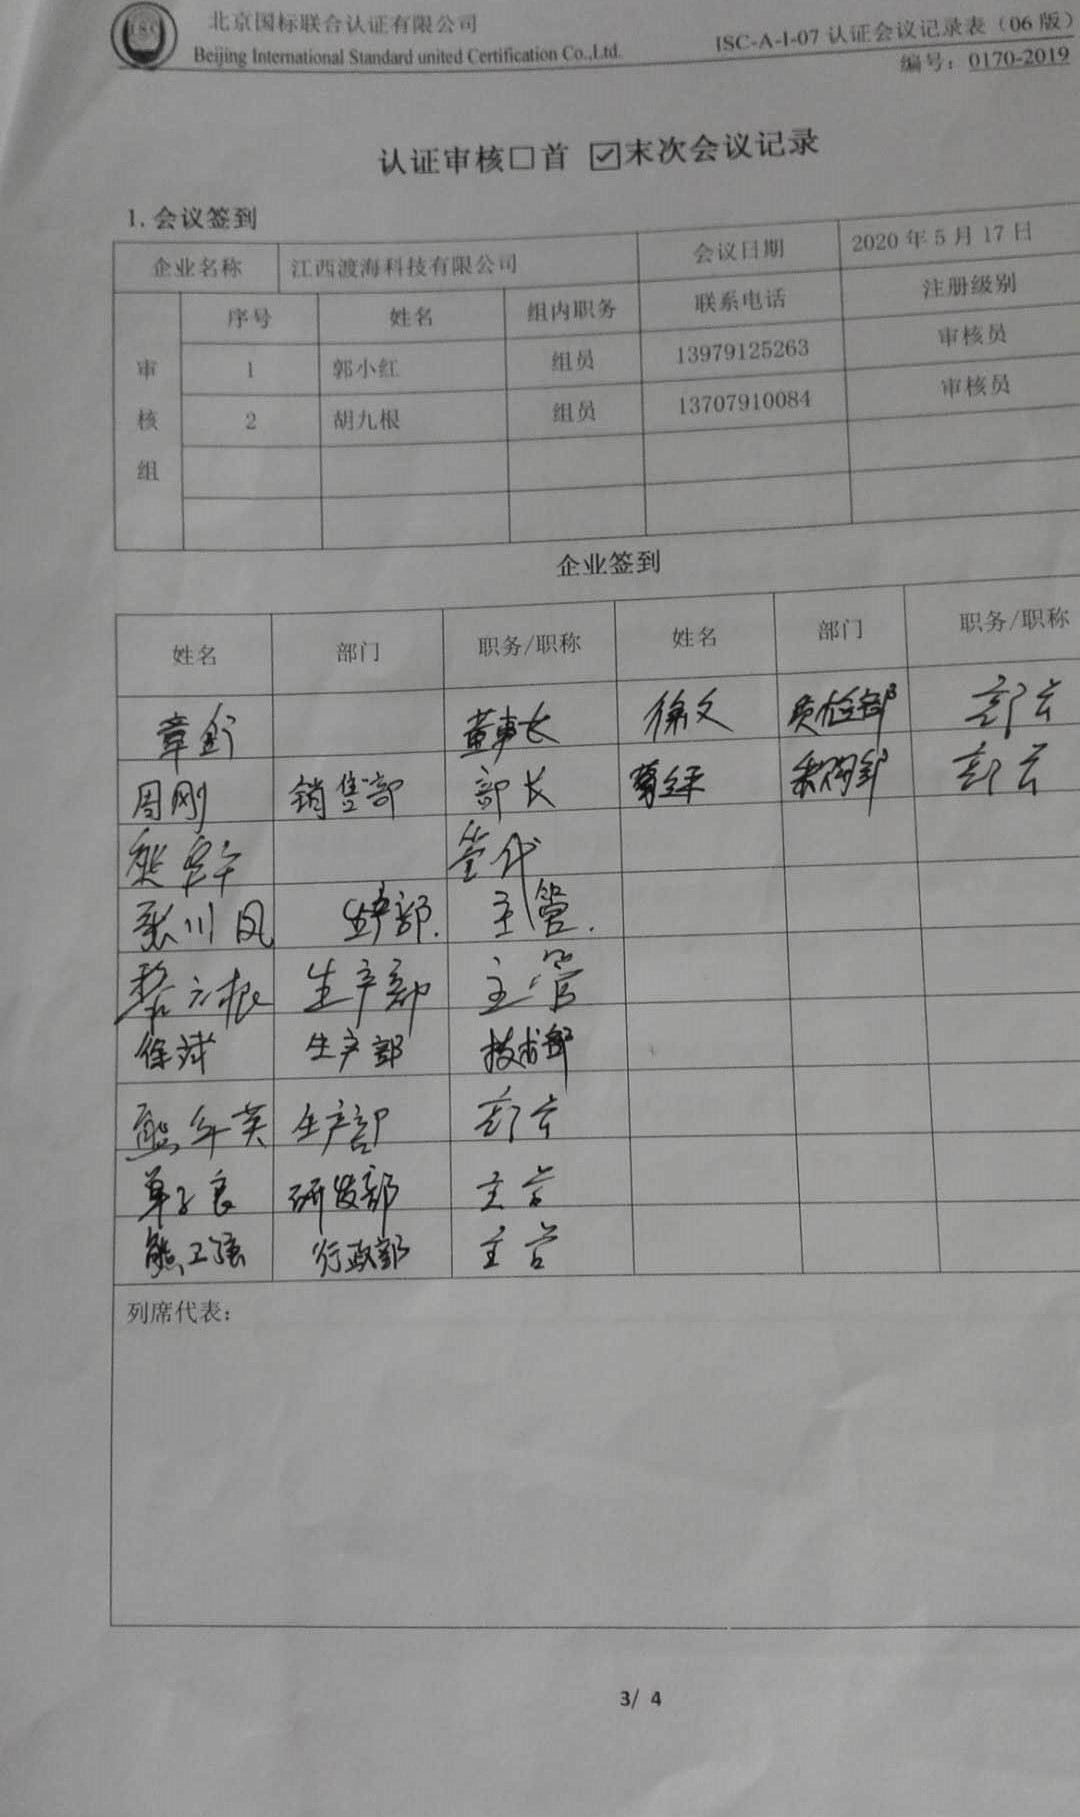 北京国标联合认证有限公司
Beijing International Standard united Certification Co.,Ltd.
ISC-A-I-07 认证会议记录表（06 版）
编号：0170-2019
认证审核□首 ☑末次会议记录
1. 会议签到
企业名称 江西渡海科技有限公司 会议日期 2020 年 5 月 17 日
审核组 序号 姓名 组内职务 联系电话 注册级别
1 郭小红 组员 13979125263 审核员
2 胡九根 组员 13707910084 审核员
企业签到
姓名 部门 职务/职称 姓名 部门 职务/职称
董事长 徐文 质检部
周刚 销售部 部长 采购部
管代
张川凤 生产部. 主管.
黎六根 生产部 主管
徐斌 生产部 技术部
熊年英 生产部
研发部 主管
熊卫强 行政部 主管
列席代表：
3/ 4